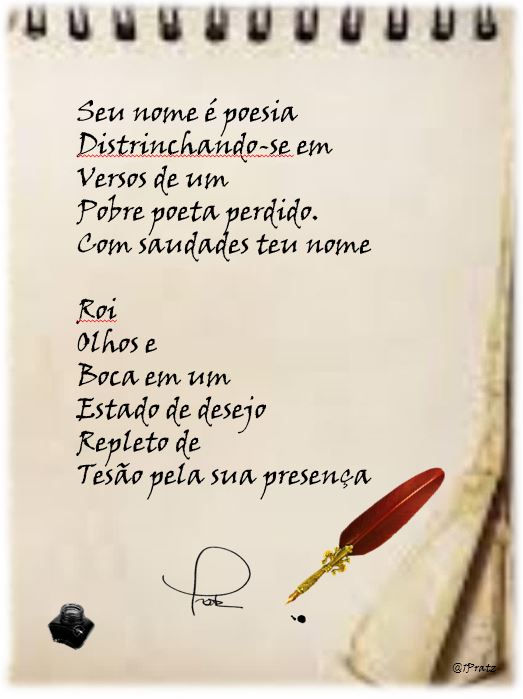 Seu nome é poesia
Distrinchando-se em
Versos de um
Pobre poeta perdido.
Com saudades teu nome
Roi
Olhos e
Boca em um
Estado de desejo
Repleto de
Tesão pela sua presença
@IPratz